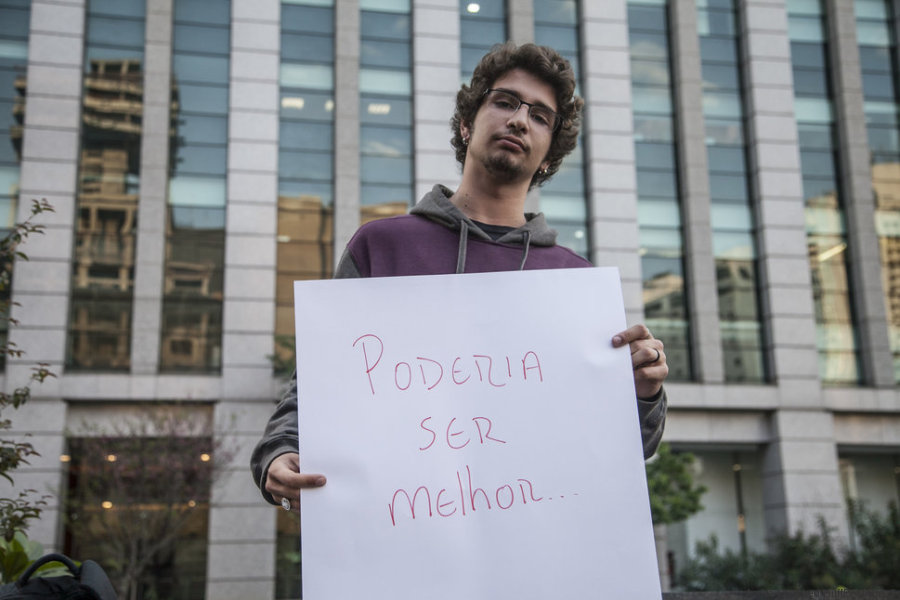 PODERIA
SER
melhor...